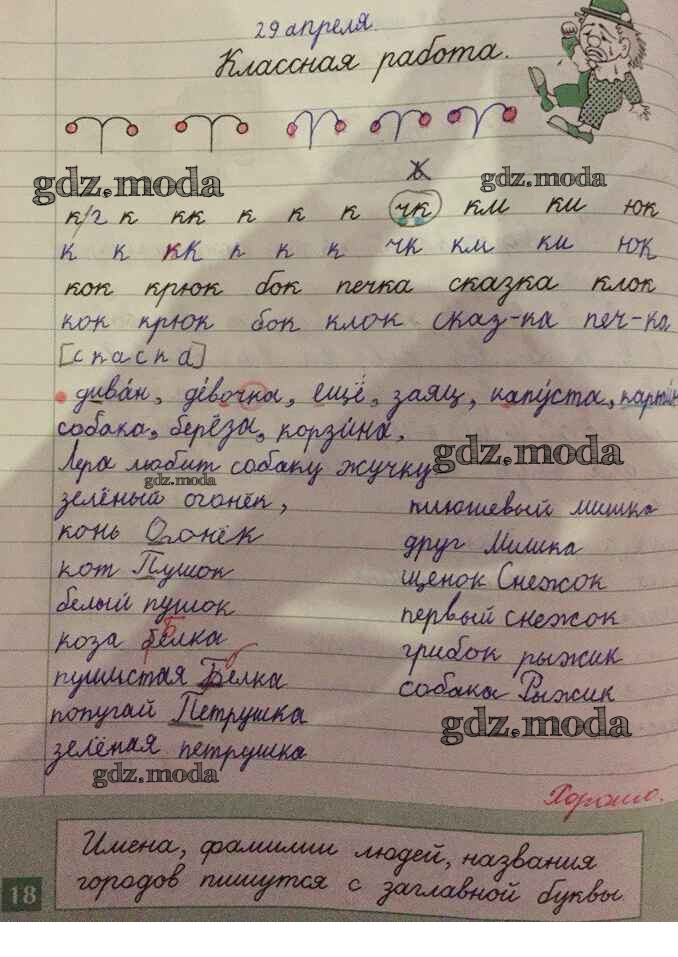 29 апреля.
Классная работа.
gdz.moda
gdz.moda
ь
к/г к кк к к к чк км ки юк
к к кк к к к чк км ки юк
кок крюк бок печка сказка клок
кок крюк бок клок сказ-ка печ-ка
[сkаска]
диван, девочка, ещё, заяц, капуста, картин
собака, берёза, корзина.
gdz.moda
Лера любит собаку жучку
gdz.moda
зелёный огонёк,
конь Огонёк
кот Пушок
белый пушок
коза белка Б
пушистая Белка б
попугай Петрушка
зелёная петрушка
плюшевый мишка
друг Мишка
щенок Снежок
первый снежок
грибок рыжик
собака Рыжик
gdz.moda
gdz.moda
Хорошо.
Имена, фамилии людей, названия
городов пишутся с заглавной буквы.
18